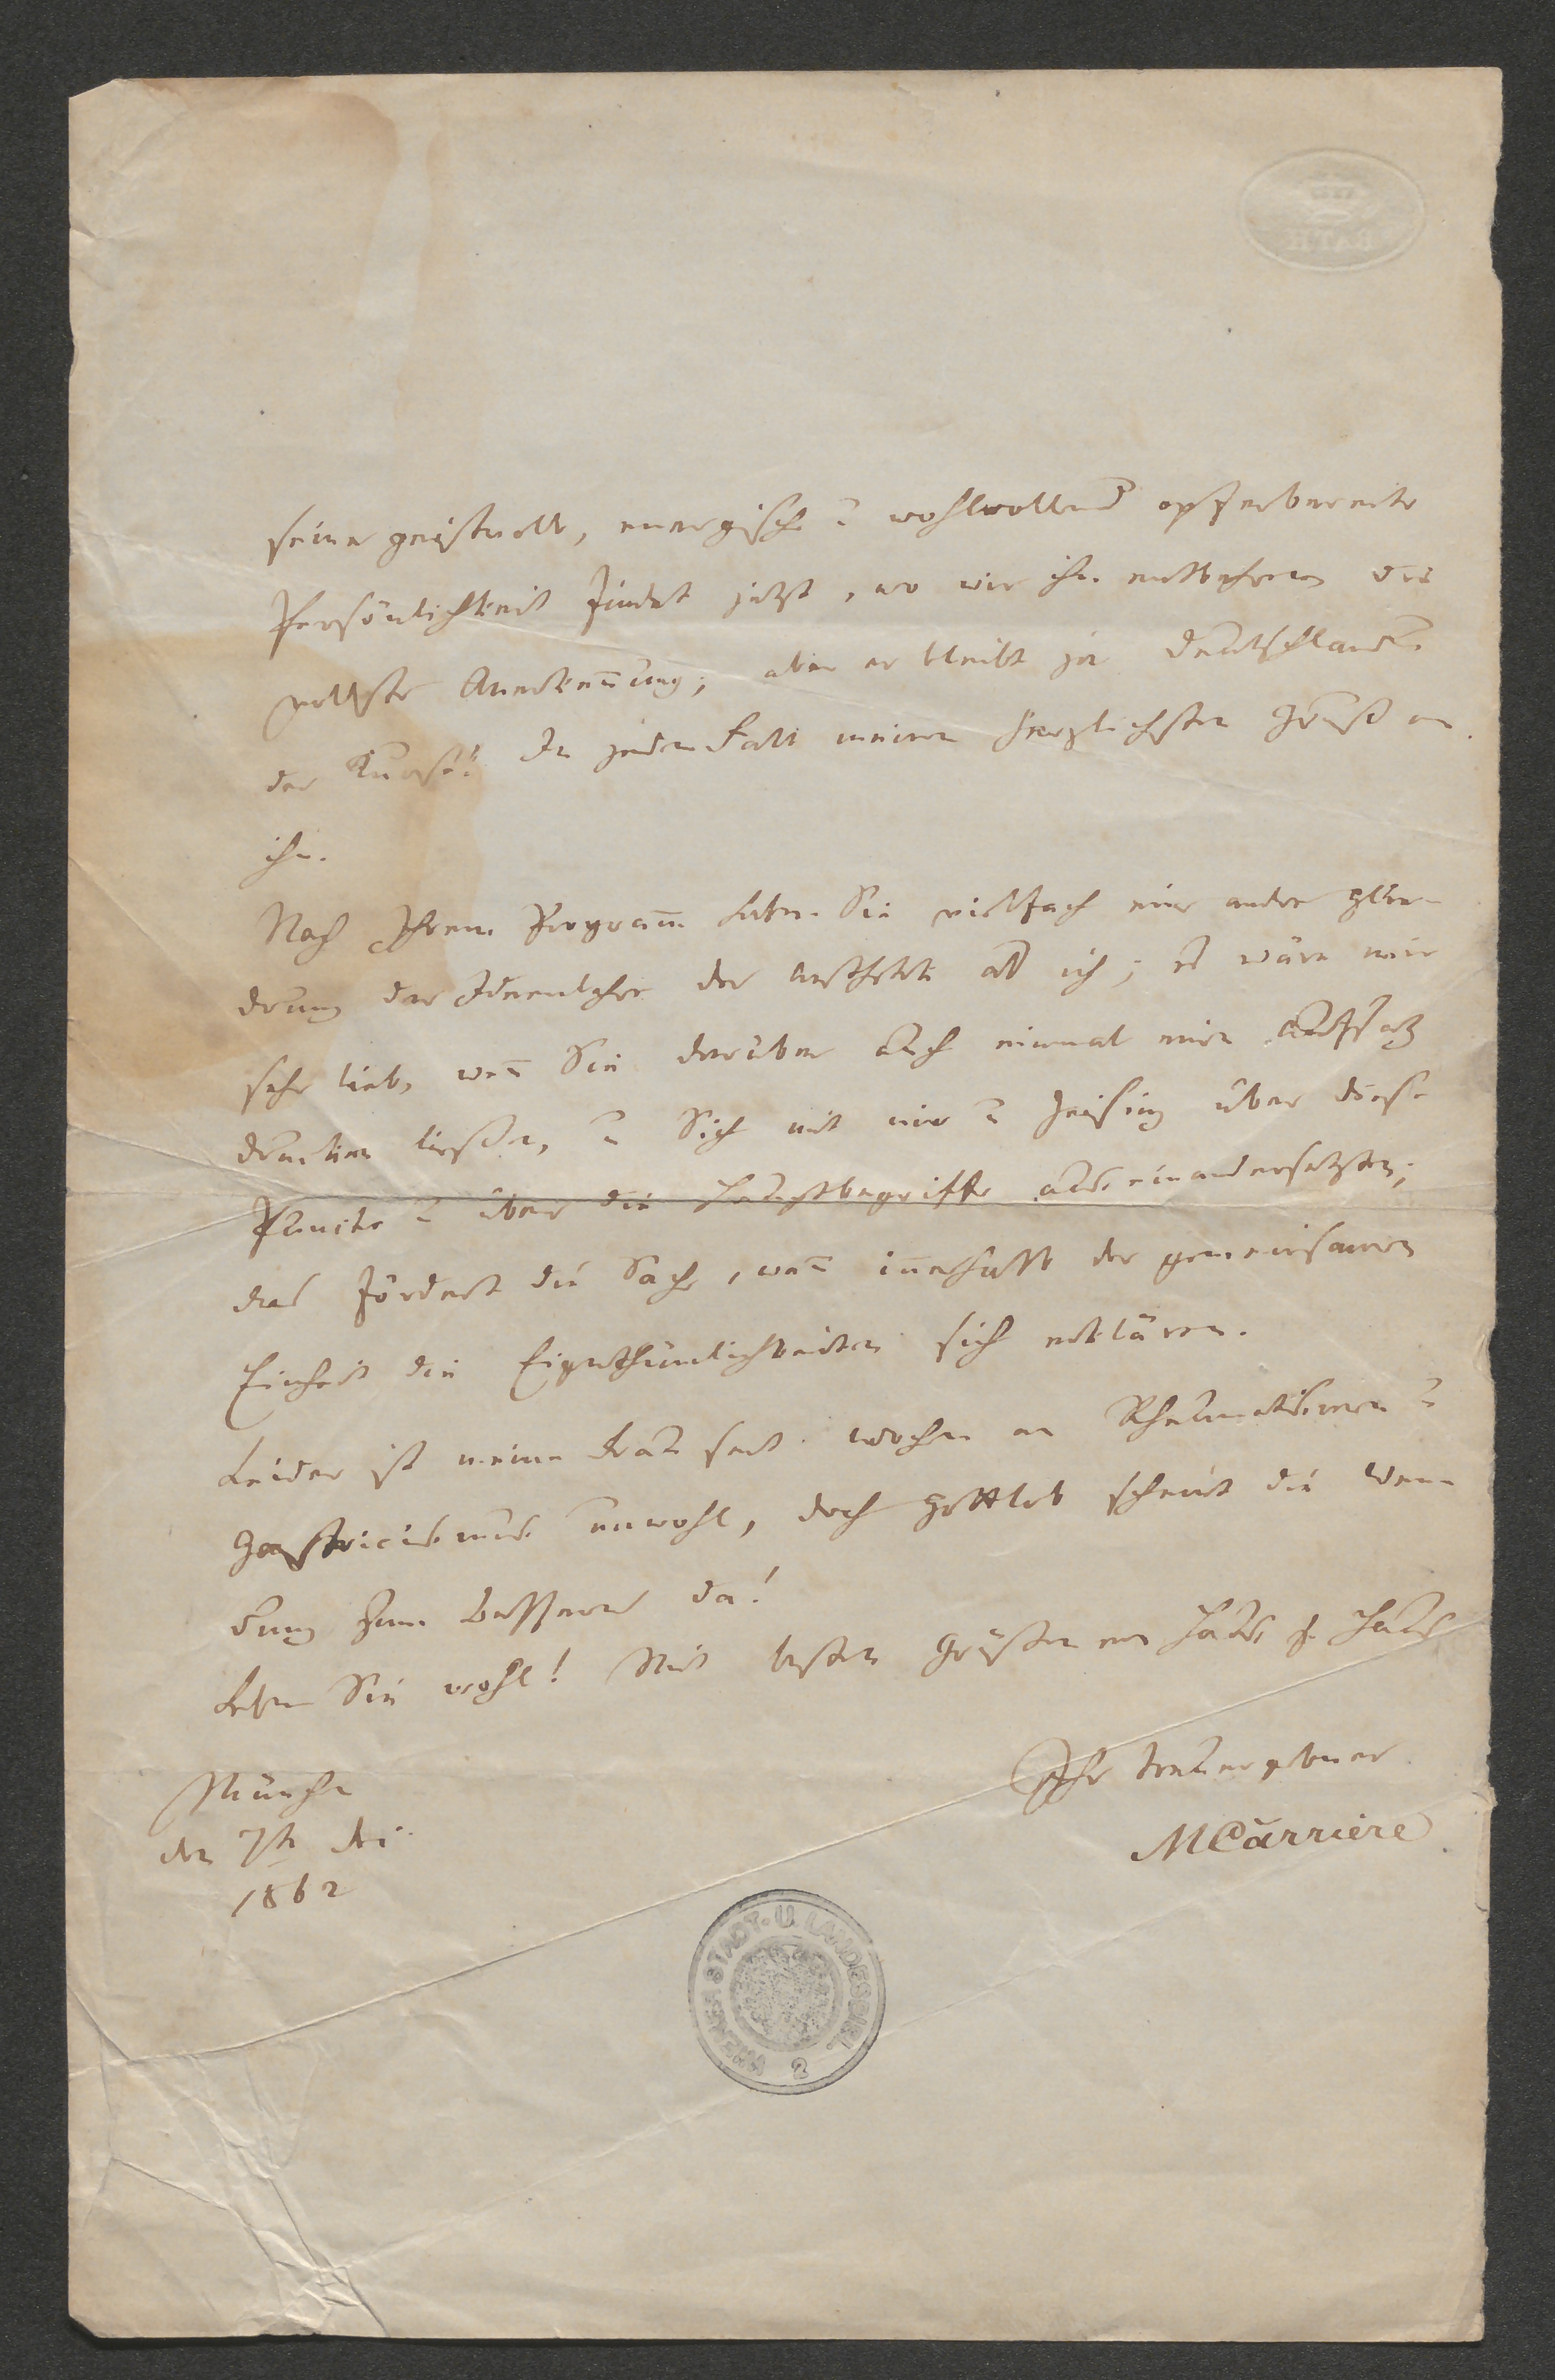 seine geistvolle, energische u wohlwollend opferbereite
Persönlichkeit findet jetzt, wo wir ihn entbehren die
vollste Anerkennung; aber er bleibt ja Deutschland u
der Kunst! In jedem Fall meinen herzlichsten Gruß an
ihn.
Nach Ihrem Programm haben Sie vielfach eine andre Glie-
drung der Ideenlehre der Aesthetik als ich; es wäre mir
sehr lieb, wenn Sie darüber auch einmal einen Aufsatz
drucken ließen, u Sich mit mir u Zeising über diese
Puncte u über die Hauptbegriffe auseinandersetzten;
das fördert die Sache, wenn innerhalb der gemeinsamen
Einheit die Eigenthümlichkeiten sich erklären.
Leider ist meine Frau seit Wochen an Rheumatismen u
Gastricismus unwohl, doch gottlob scheint die Wen-
dung zum Besseren da!
Leben Sie wohl! Mit besten Grüßen von Haus z. Haus
Ihr treuergebner
MCarriere
München
den 7ten
1862
WIENER STADT- U. LANDESBIBL.
2
BATH